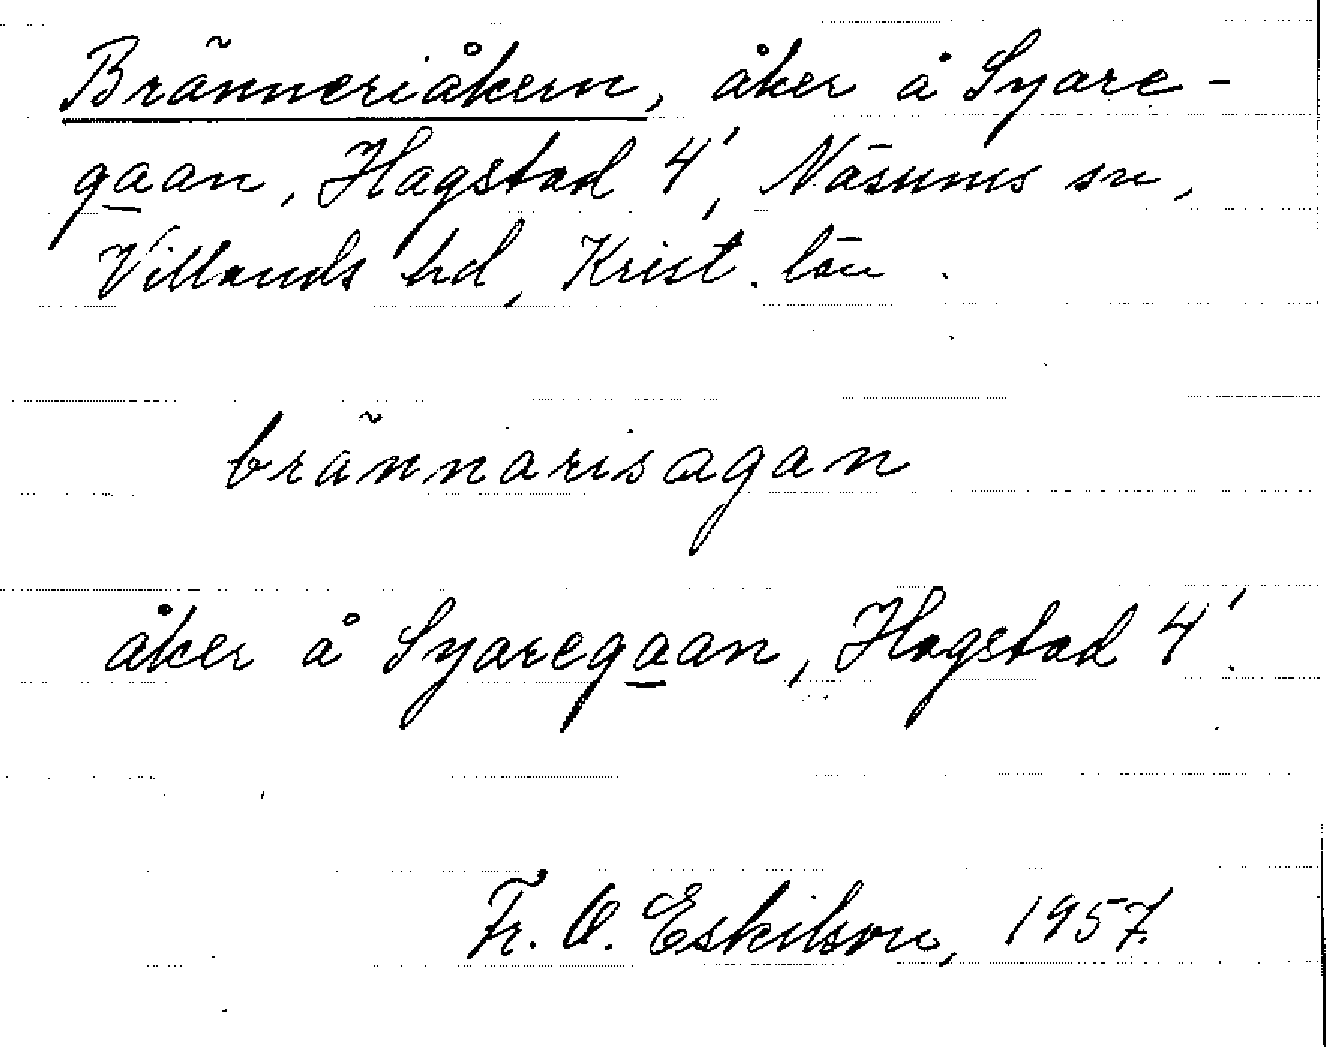 Bränneriåkern, åker å Syare-
gaan, Hagstad 4', Näsums sn,
Villands hd, Krist. län.
brännarisagan
åker å Syaregaan, Hagstad 4'.
Fr. O. Eskilson, 1957.